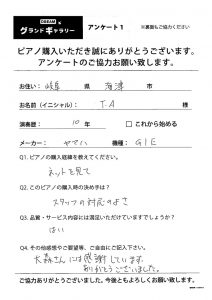 DREAM ×
グランドギャラリー
アンケート1
※裏面もご協力ください
ピアノ購入いただき誠にありがとうございます。
アンケートのご協力お願い致します。
お住い： 岐阜 県 海津 市
お名前（イニシャル）： T.A 様
演奏歴： 10 年 □これから始める
メーカー： ヤマハ 機種： G1E
Q1. ピアノの購入経緯を教えてください。
ネットを見て
Q2. このピアノの購入時の決め手は？
スタッフの対応のよさ
Q3. 品質・サービス内容には満足いただけていますでしょうか？
はい
Q4. その他感想やご要望等、ご自由にご記入下さい。
大森さんには感謝しています。
ありがとうございました。
ご協力ありがとうございました。今後ともよろしくお願い致します。